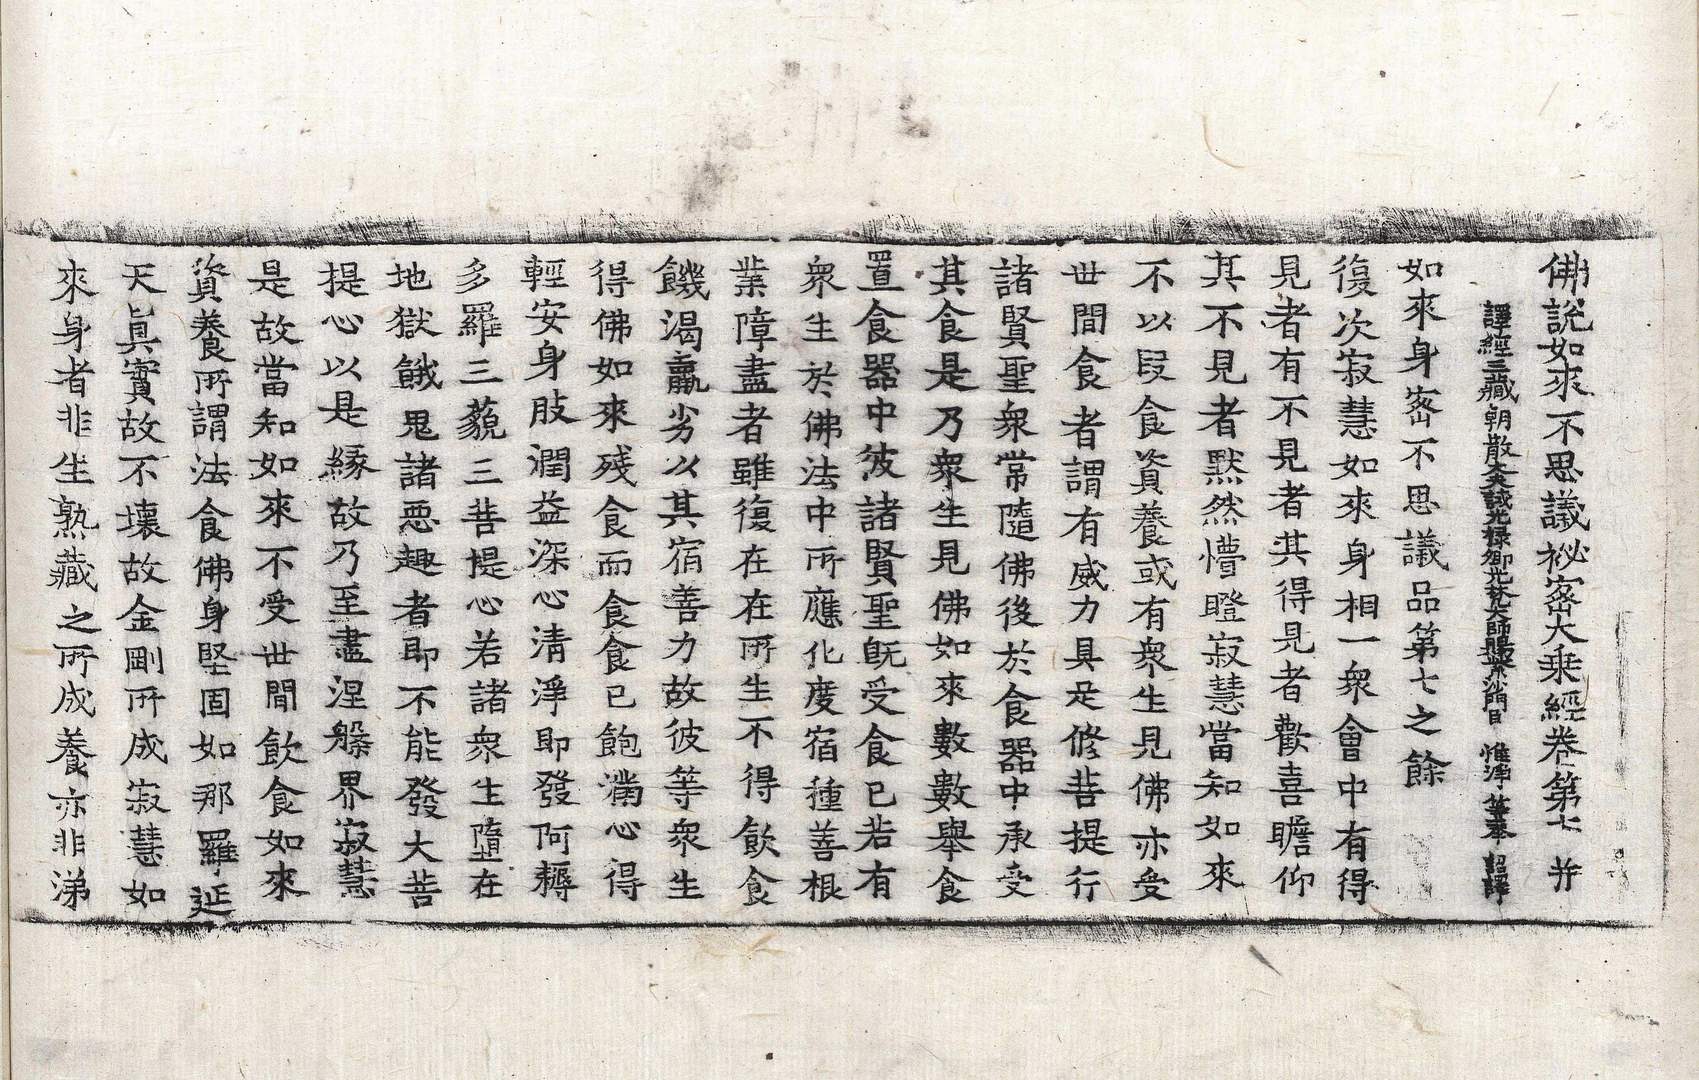 佛說如來不思議祕密大乘經卷第七 并
譯經三藏朝散大夫試光禄卿光梵大師賜紫沙門臣 惟淨 等奉 詔譯
如來身密不思議品第七之餘
復次寂慧如來身相一衆會中有得
見者有不見者其得見者歡喜瞻仰
其不見者默然懵瞪寂慧當知如來
不以段食資養或有衆生見佛亦受
世間食者謂有威力具足修菩提行
諸賢聖衆常隨佛後於食器中承受
其食是乃衆生見佛如來數數舉食
置食器中彼諸賢聖旣受食已若有
衆生於佛法中所應化度宿種善根
業障盡者雖復在在所生不得飲食
饑渴羸劣以其宿善力故彼等衆生
得佛如來殘食而食食已飽滿心得
輕安身肢潤益深心清淨即發阿耨
多羅三藐三菩提心若諸衆生墮在
地獄餓鬼諸惡趣者即不能發大菩
提心以是緣故乃至盡涅槃界寂慧
是故當知如來不受世間飲食如來
資養所謂法食佛身堅固如那羅延
天眞實故不壞故金剛所成寂慧如
來身者非生熟藏之所成養亦非涕